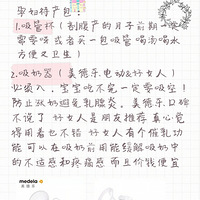 孕妇待产包
1.吸管杯(剖腹产的月子前期一定
需要呀 或者买一包吸管喝汤喝水
方便又卫生)
2.吸奶器(美德乐电动&好女人)
必须入,宝宝吃不完一定要吸空!
防止奶避免乳腺炎,美德乐口碑
不说了 好女人是朋友推荐 真心觉
得用着也不错 好女人有个催乳功
能 可以在吸奶前用能缓解吸奶中
的不适感和疼痛感 而且价钱便宜
medela
美德乐